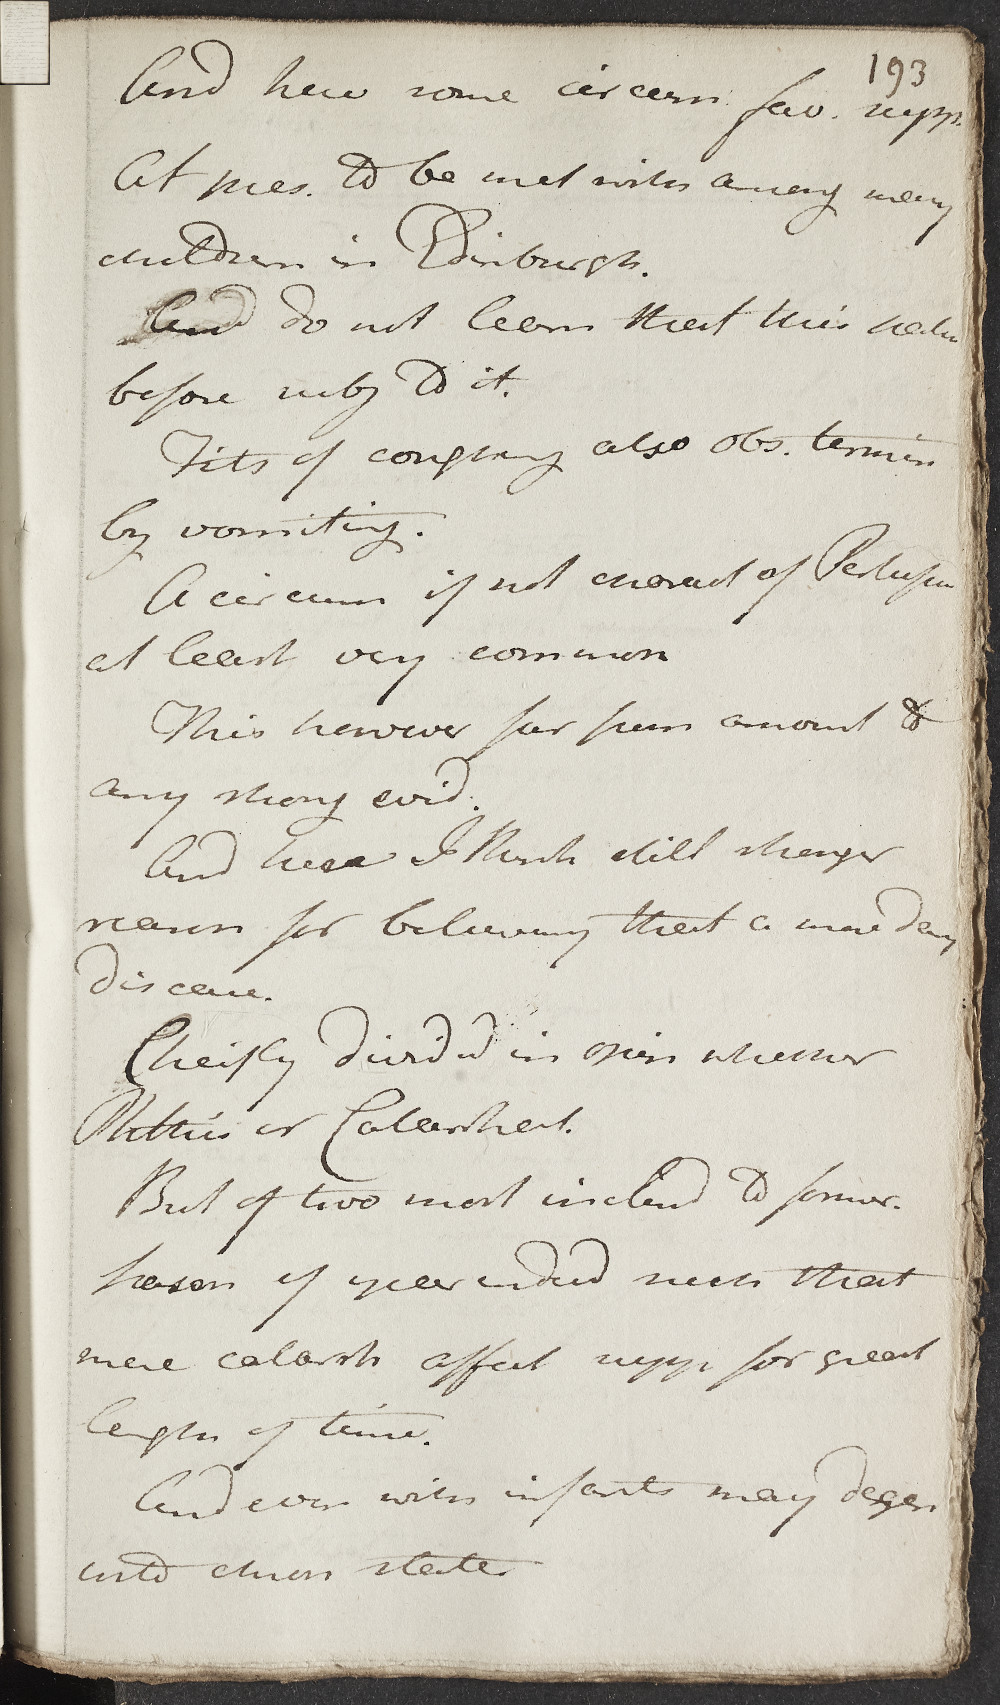 193
And here some circum fav. supp.
At pres. to be met with among many
children in Edinburgh.
And do not learn that this patn
before subj to it.
Fits of coughing also obs. termin
by vomiting.
A circum if not charact of Pertussis
at least very common
This however far from amount to
any strong evid.
And here I think still stronger
reason for believing that a more dang
disease.
Cheifly divided in opin whether
Phthisis or Catarrhal.
But of two most inclind to former.
Season of year indeed such that
mere catarrh affect supp for great
length of time.
And even with infants may degen
into chron state